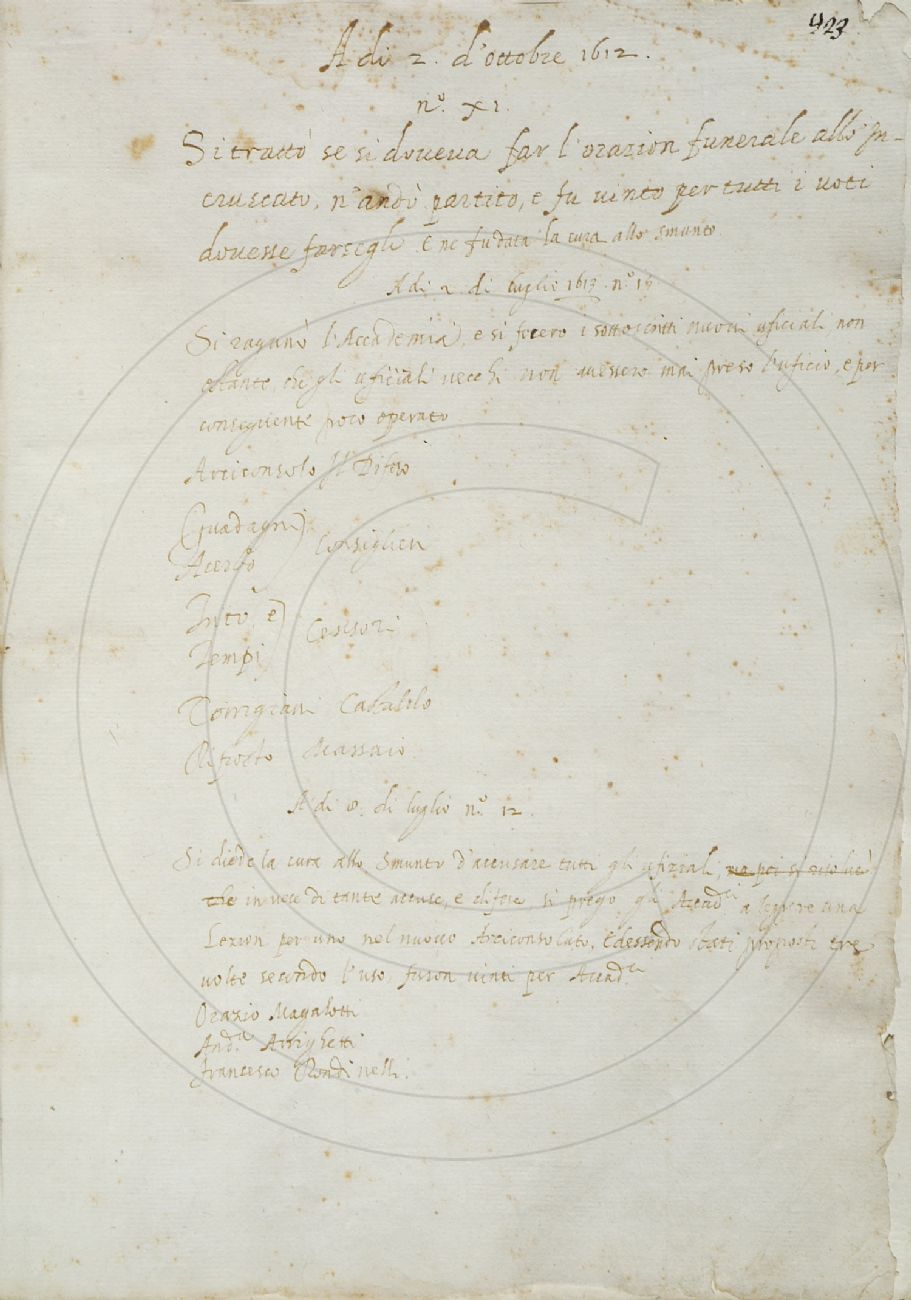 423
A di 2. d'ottobre 1612.
n.º XI.
Si trattò se si doueua far l'orazion funerale allo In-
cruscato, n'andò partito, e fu uinto per tutti i uoti
douesse farsegli e ne fu data la cura allo Smunto
A di 2 di luglio 1613. n.º
Si ragunò l'Accademia, e si fecero i sottoscritti nuoui uficiali non
ostante, che gli uficiali uecchi non auessero mai preso l'uficio, e per
conseguente poco operato
Arciconsolo Il Difeso
Guadagni
Acerbo Consiglieri
Into, e
Tempi Censori
Torrigiani Castaldo
Rifiorito Massaio
A di 8. di luglio n.º 12.
Si diede la cura allo Smunto d'accusare tutti gli ufiziali, ma poi si risoluè
che in uece di tante accuse, e difese si pregò gli Accad.ci a leggere una
Lezion per uno nel nuouo Arciconsolato, edessendo stati proposti tre
uolte secondo l'uso, furon uinti per Accad.ci
Orazio Magalotti
And.a Arrighetti
Francesco Rondinelli.